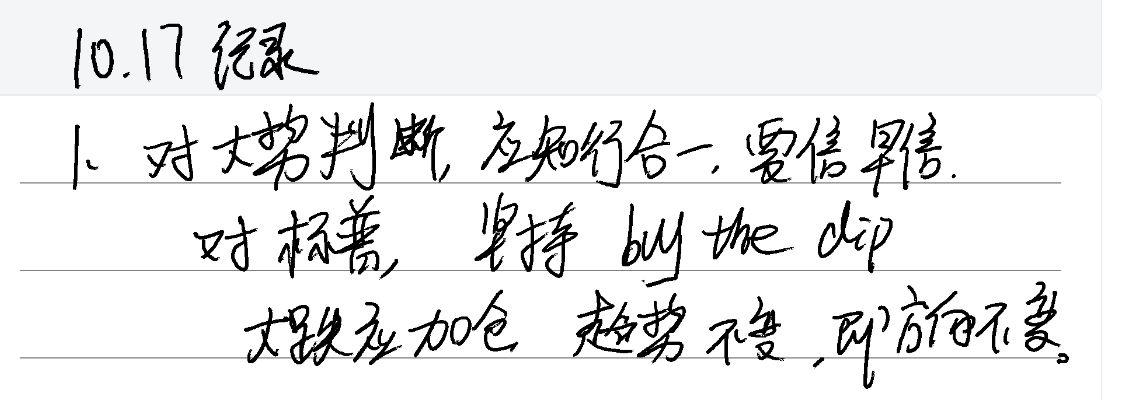 10.17 记录
1、对大势判断，应知行合一，要信早信.
对标普，坚持 buy the dip
大跌应加仓 趋势不变，即方向不变。